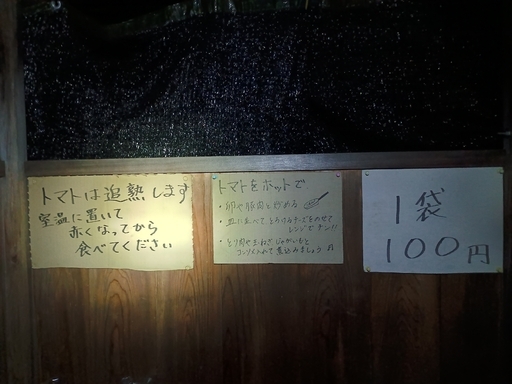 トマトは追熟します
室温に置いて
赤くなってから
食べてください
トマトをホットで
・卵や豚肉と炒める
・皿に並べてとろけるチーズをのせて
レンジでチン!!
・とり肉や玉ねぎ、じゃがいもと
コンソメ入れて煮込みましょう
1袋
100円